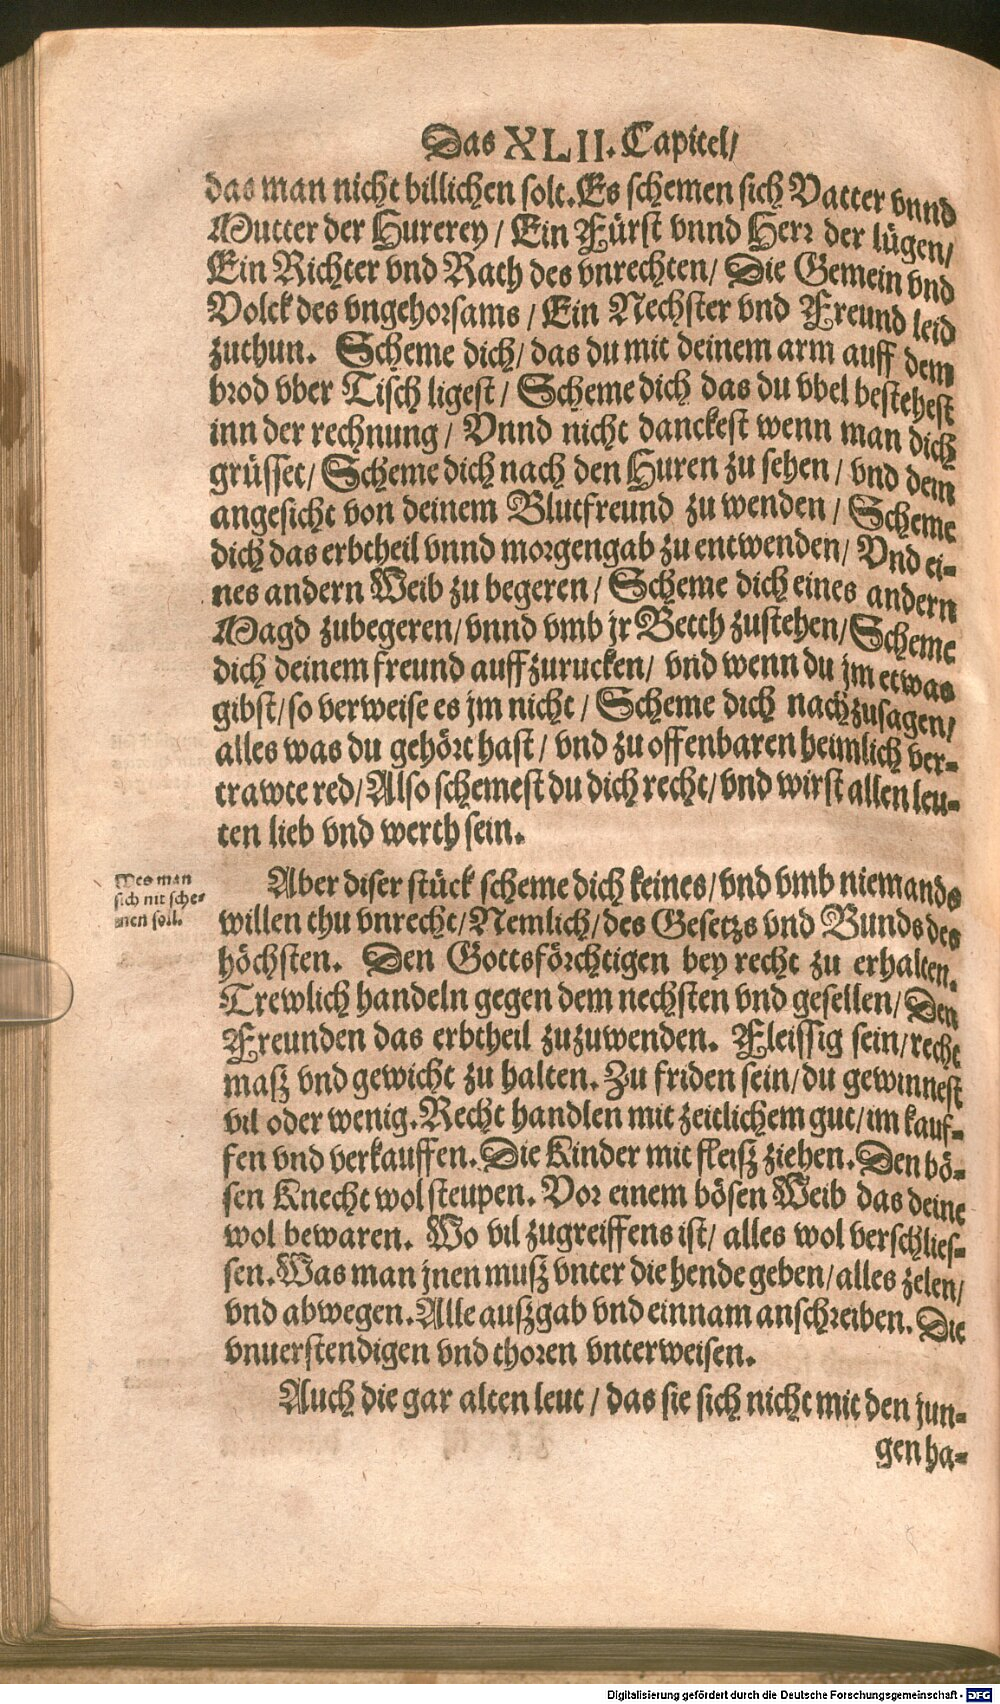 Das XLII. Capitel/
das man nicht billichen solt. Es schemen sich Vatter vnnd
Mutter der Hurerey / Ein Fürst vnnd Herr der lügen/
Ein Richter vnd Rath des vnrechten/ Die Gemein vnd
Volck des vngehorsams / Ein Nechster vnd Freund leid
zuthun. Scheme dich/ das du mit deinem arm auff dem
brod vber Tisch ligest / Scheme dich das du vbel bestehest
inn der rechnung / Vnnd nicht danckest wenn man dich
grüsset/ Scheme dich nach den Huren zu sehen / vnd dein
angesicht von deinem Blutfreund zu wenden / Scheme
dich das erbtheil vnnd morgengab zu entwenden/ Vnd ei-
nes andern Weib zu begeren / Scheme dich eines andern
Magd zubegeren/ vnnd vmb jr Betth zustehen/ Scheme
dich deinem freund auffzurucken/ vnd wenn du jm etwas
gibst/ so verweise es jm nicht / Scheme dich nachzusagen/
alles was du gehört hast / vnd zu offenbaren heimlich ver-
trawte red/ Also schemest du dich recht/ vnd wirst allen leu-
ten lieb vnd werth sein.
Wes man
sich nit sche-
men soll.
Aber diser stück scheme dich keines/ vnd vmb niemands
willen thu vnrecht/ Nemlich/ des Gesetzs vnd Bunds des
höchsten. Den Gottsförchtigen bey recht zu erhalten.
Trewlich handeln gegen dem nechsten vnd gesellen/ Den
Freunden das erbtheil zuzuwenden. Fleissig sein/ recht
maß vnd gewicht zu halten. Zu friden sein/ du gewinnest
vil oder wenig. Recht handlen mit zeitlichem gut/ im kauf-
fen vnd verkauffen. Die Kinder mit fleiß ziehen. Den bö-
sen Knecht wol steupen. Vor einem bösen Weib das deine
wol bewaren. Wo vil zugreiffens ist/ alles wol verschlies-
sen. Was man jnen muß vnter die hende geben/ alles zelen/
vnd abwegen. Alle außgab vnd einnam anschreiben. Die
vnuerstendigen vnd thoren vnterweisen.
Auch die gar alten leut / das sie sich nicht mit den jun-
gen ha-
Digitalisierung gefördert durch die Deutsche Forschungsgemeinschaft - DFG